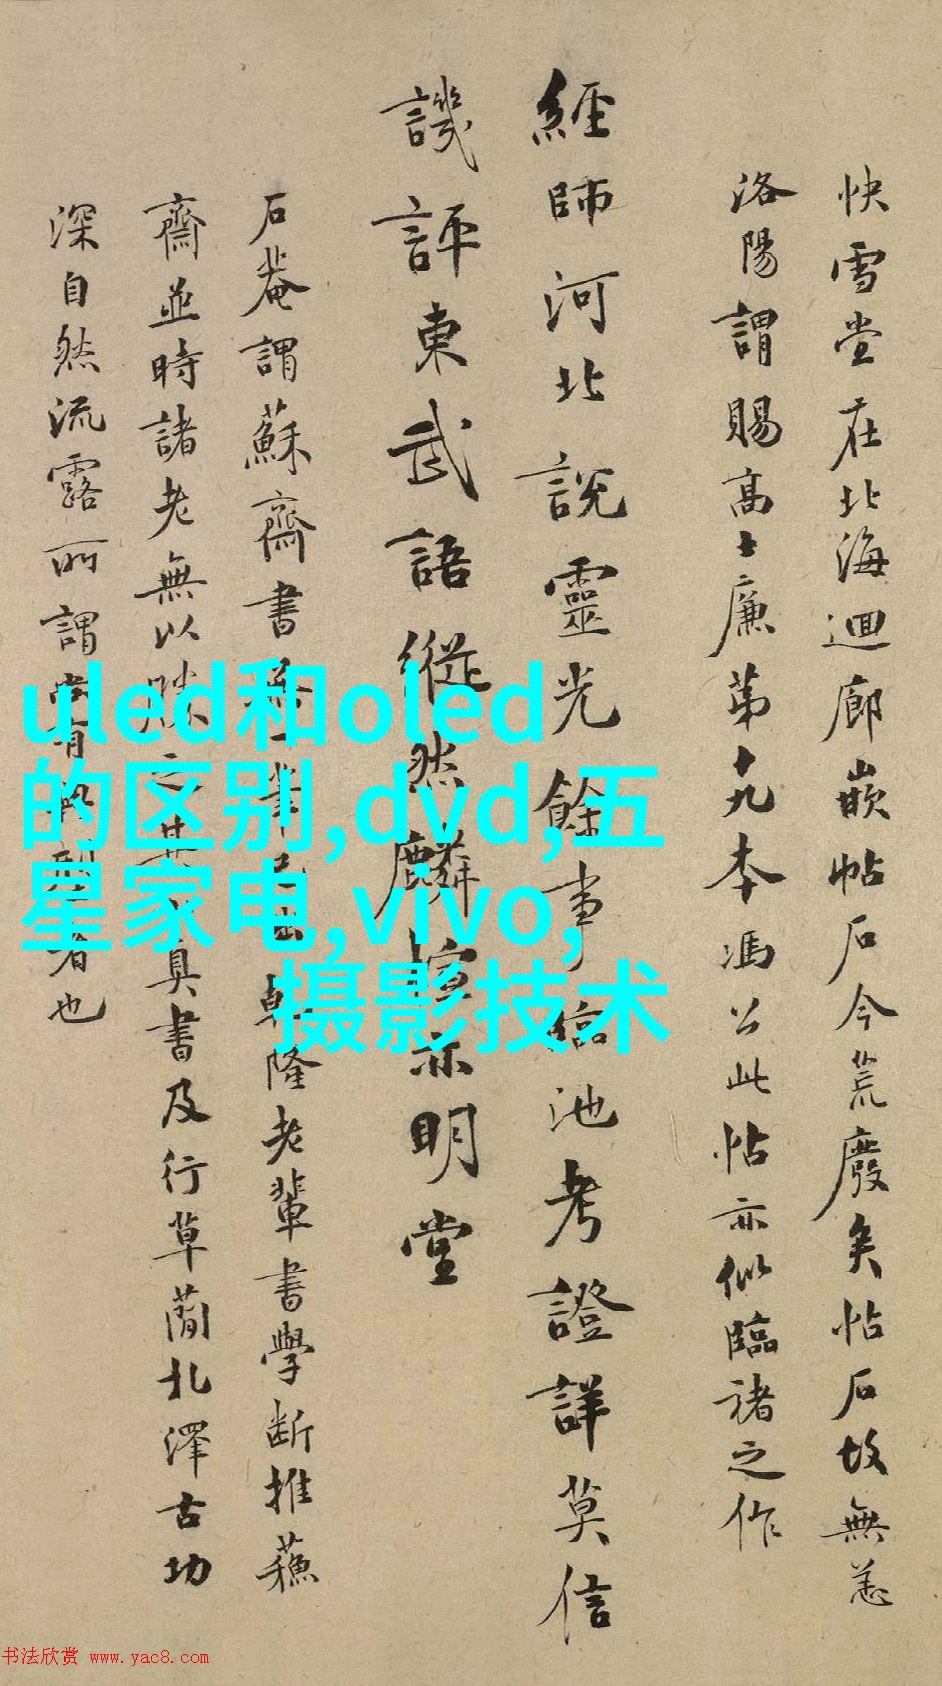 快雪堂在北海迴廊嵌帖石今荒廢矣帖石故無恙
洛陽謂賜高士廉第十九本馮公此帖亦似臨褚之作
經師河北說靈光餘事臨池考證詳莫信
譏評東武語縱然麟楦亦明堂
石菴謂蘇齋書無一筆乾隆老輩書學斷推蘇
齋並時諸老無以勝之其真書及行草蘭北澤古功
深自然流露所謂尚有典型者也
uled和oled
的区别,dvd,五
星家电,vivo,
摄影技术
书法欣赏 www.yac8.com